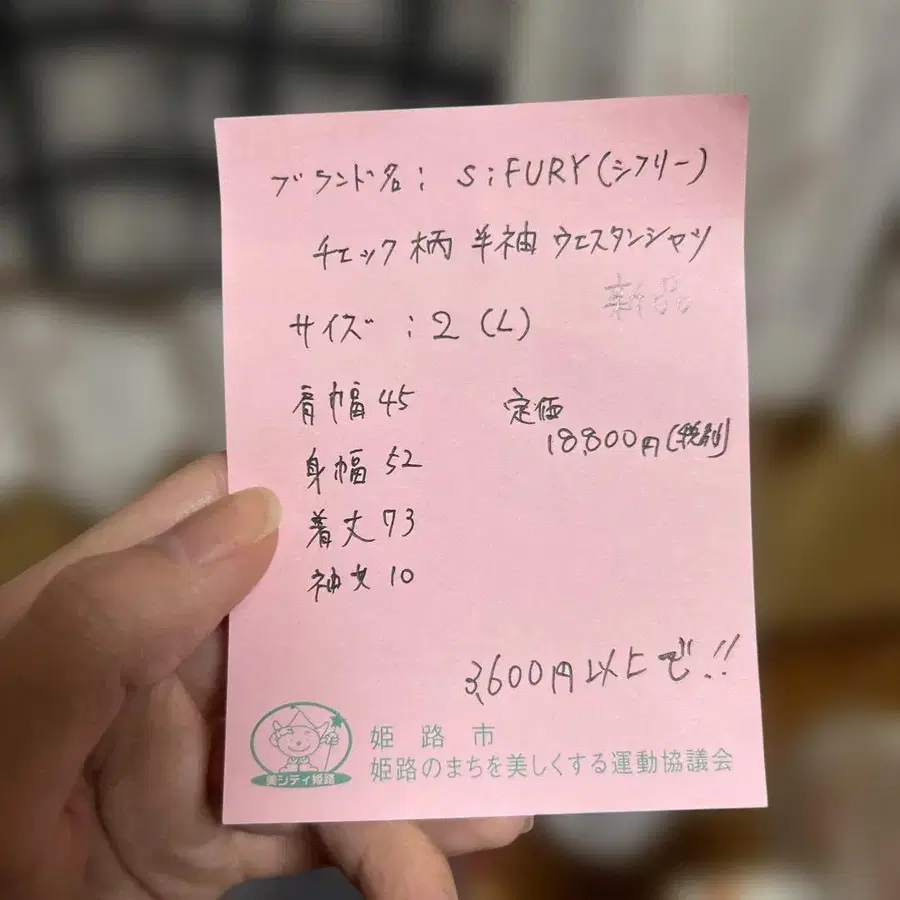 ブランド名: Si FURY(シフリー)
チェック柄 半袖 ウエスタンシャツ
新品
サイズ : 2 (L)
肩幅 45
定価
18,800円(税別)
身幅 52
着丈 73
袖丈 10
3,600円以上で!!
美シティ姫路
姫路市
姫路のまちを美しくする運動協議会